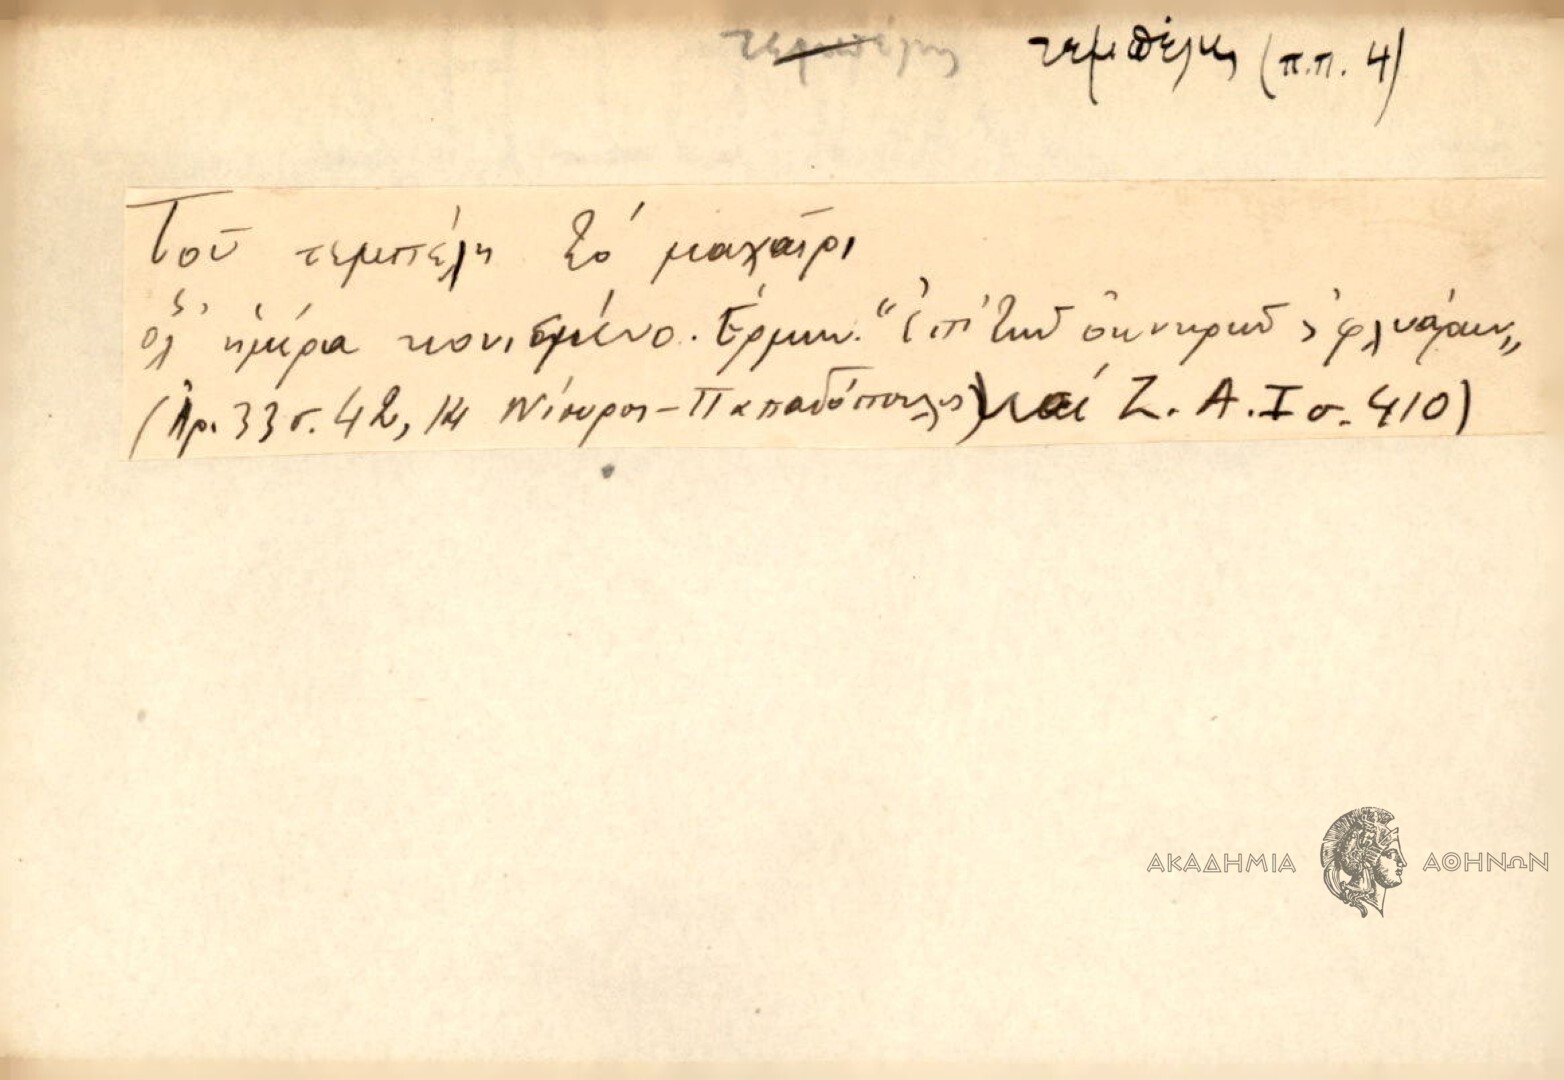 τεμπέλης τεμπέλης (π.π. 4)
Τοῦ τεμπέλη τό μαχαῖρι
ὅλ' ἡμέρα κονισμένο. Ἑρμην. “Ἐπί τῶν ὀκνηρῶν ἤ φλυάρων„
(Ἀρ. 33 σ. 42, 14 Νίσυρος - Παπαδόπουλος) καί Ζ. Α. Ι σ. 410)
ΑΚΑΔΗΜΙΑ ΑΘΗΝΩΝ